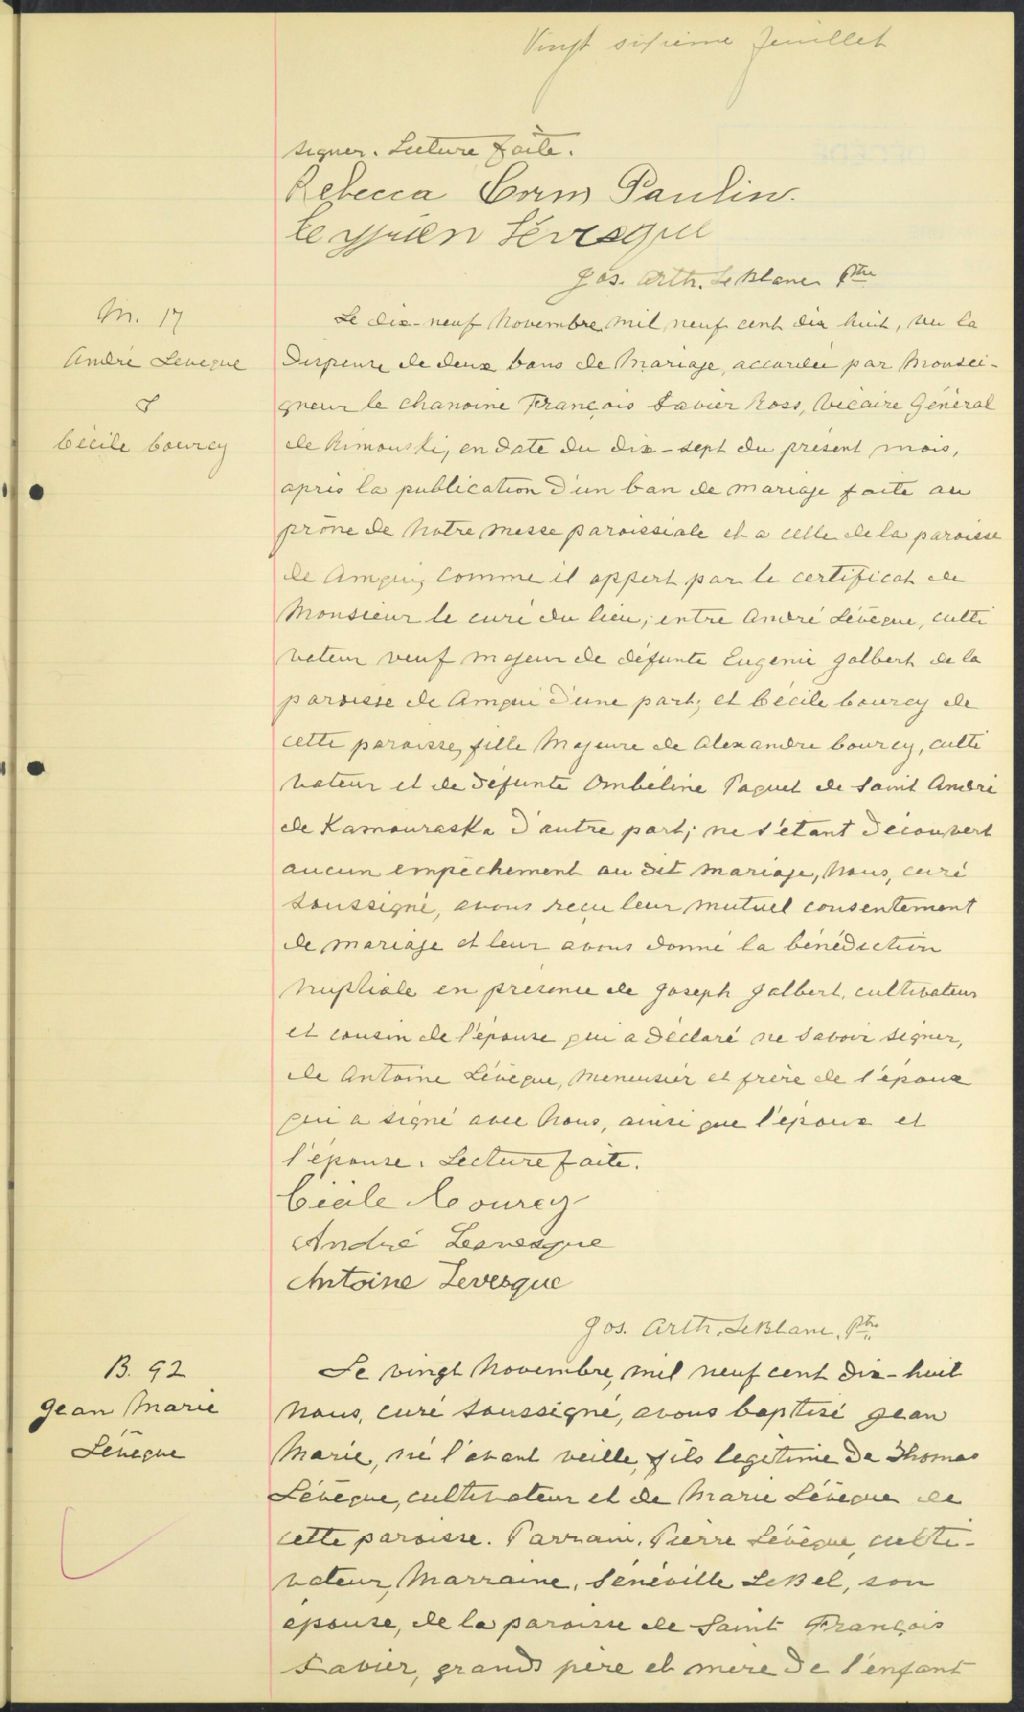 Vingt sixième feuillet
signer. Lecture faite.
Rebecca Corm Paulin.
Cyprien Lévesque
Jos. Arth. LeBlanc Ptre
M. 17
André Leveque
&
Cécile Courcy
Le dix-neuf Novembre, mil neuf cent dix huit, vu la
dispense de deux bans de Mariage, accordée par Monsei-
gneur le chanoine François Xavier Ross, Vicaire Général
de Rimouski, en date du dix-sept du présent mois,
après la publication d'un ban de mariage faite au
prône de Notre Messe paroissiale et a celle de la paroisse
de Amqui, comme il appert par le certificat de
Monsieur le curé du lieu; entre André Lévêque, culti
vateur veuf majeur de défunte Eugenie Jalbert de la
paroisse de Amqui d'une part; et Cécile Courcy de
cette paroisse, fille Majeure de Alexandre Courcy, culti
vateur et de défunte Ombéline Paquet de Saint André
de Kamouraska d'autre part; ne s'étant découvert
aucun empêchement au dit mariage, Nous, curé
soussigné, avons reçu leur mutuel consentement
de mariage et leur avons donné la bénédiction
Nuptiale en présence de Joseph Jalbert, cultivateur
et cousin de l'épouse qui a déclaré ne savoir signer,
de Antoine Lévêque, Menuisier et frère de l'époux
qui a signé avec Nous, ainsi que l'époux et
l'épouse. Lecture faite.
Cécile Courcy
André Levesque
Antoine Levesque
Jos. Arth. LeBlanc, Ptre.
B. 92
Jean Marie
Lévêque
Le vingt Novembre, mil neuf cent dix-huit
Nous, curé soussigné, avons baptisé Jean
Marie, né l'avant veille, fils legitime de Thomas
Lévêque, cultivateur et de Marie Lévêque de
cette paroisse. Parrain, Pierre Lévêque, culti-
vateur, Marraine, Sénéville LeBel, son
épouse, de la paroisse de Saint François
Xavier, grands père et mère de l'enfant